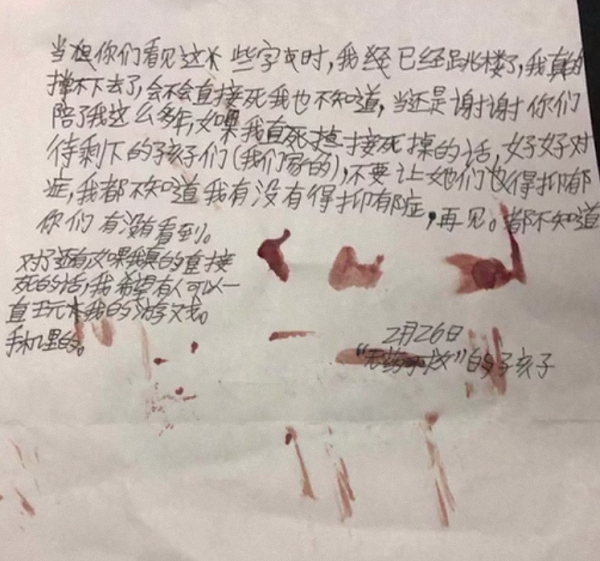 当但你们看见这些字时,我经已经跳楼了,我真的
撑不下去了,会不会直接死我也不知道,当还是谢谢你们
陪了我这么多年,如果我直死掉接死掉的话,好好对
待剩下的孩子们(我们家的),不要让她们也得抑郁
症,我都不知道我有没有得抑郁症,再见。都不知道
你们有没有看到。
对了还有如果我真的直接
死的话,我希望有人可以一
直玩我的游戏。
手机里的。
2月26日
“无药可救”的孩子